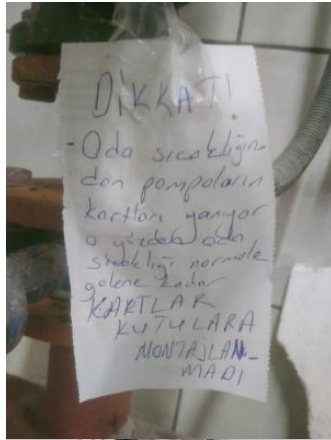 DİKKAT!
- Oda sıcaklığın
dan pompaların
kartları yanıyor
o yüzden oda
sıcaklığı normale
gelene kadar
KARTLAR
KUTULARA
MONTAJLAN-
MADI